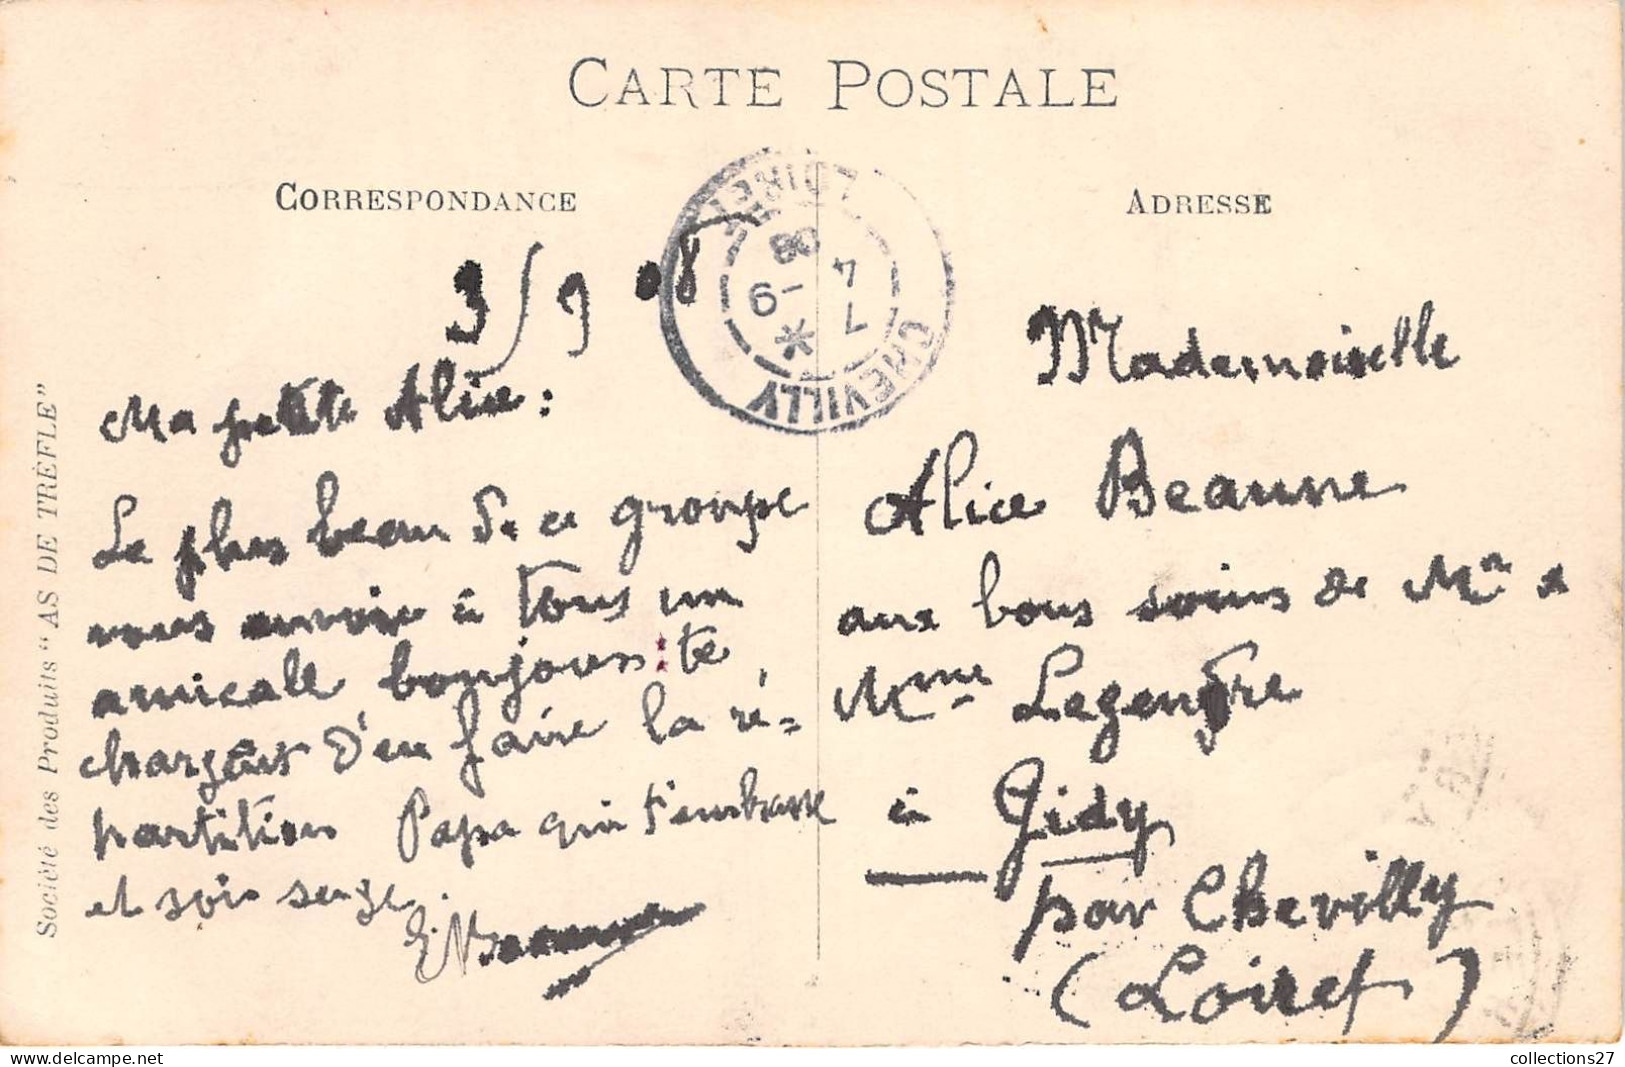 CARTE POSTALE
CORRESPONDANCE
ADRESSE
LOIRET
08
7 4
-9
*
CHEVILLY
3/9 08
Ma petite Alice :
Le plus beau de ce groupe
vous envoie à tous un
amicale bonjour : te
chargeant d'en faire la ré-
partition Papa qui t'embrasse
et sois sage.
E. Beaune
Mademoiselle
Alice Beaune
aux bons soins de Mr &
Mme Legendre
à Gidy
par Chevilly
(Loiret)
Société des Produits "AS DE TRÈFLE"
collections27